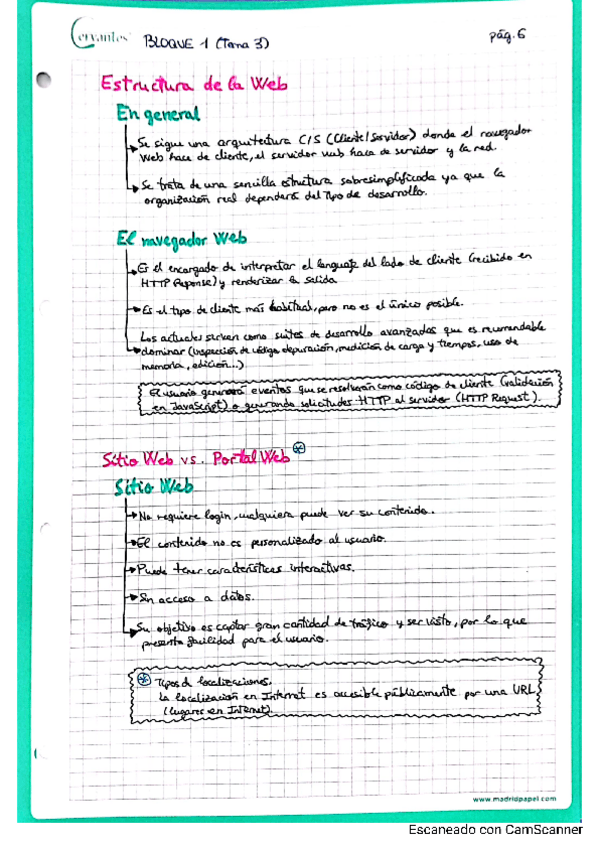 Cervantes
BLOQUE 1 (Tema 3)
pág. 6
Estructura de la Web
En general
Se sigue una arquitectura C/S (Cliente/Servidor) donde el navegador
Web hace de cliente, el servidor web hace de servidor y la red.
Se trata de una sencilla estructura sobresimplificada ya que la
organización real dependerá del tipo de desarrollo.
El navegador Web
Es el encargado de interpretar el lenguaje del lado de cliente (recibido en
HTTP Reponse) y renderizar la salida
Es el tipo de cliente más habitual, pero no es el único posible.
Los actuales sirven como suites de desarrollo avanzados que es recomendable
dominar (inspección de código, depuración, medición de carga y tiempos, uso de
memoria, edición...)
El usuario generará eventos que se resolverán como código de cliente (validación
en JavaScript) o generando solicitudes HTTP al servidor (HTTP Request).
Sitio Web vs. Portal Web *
Sitio Web
No requiere login, cualquiera puede ver su contenido.
El contenido no es personalizado al usuario.
Puede tener características interactivas.
Sin acceso a datos.
Su objetivo es captar gran cantidad de tráfico y ser visto, por lo que
presenta facilidad para el usuario.
* Tipos de localizaciones.
La localización en Internet es accesible públicamente por una URL
(lugares en Internet).
www.madridpapel.com
Escaneado con CamScanner